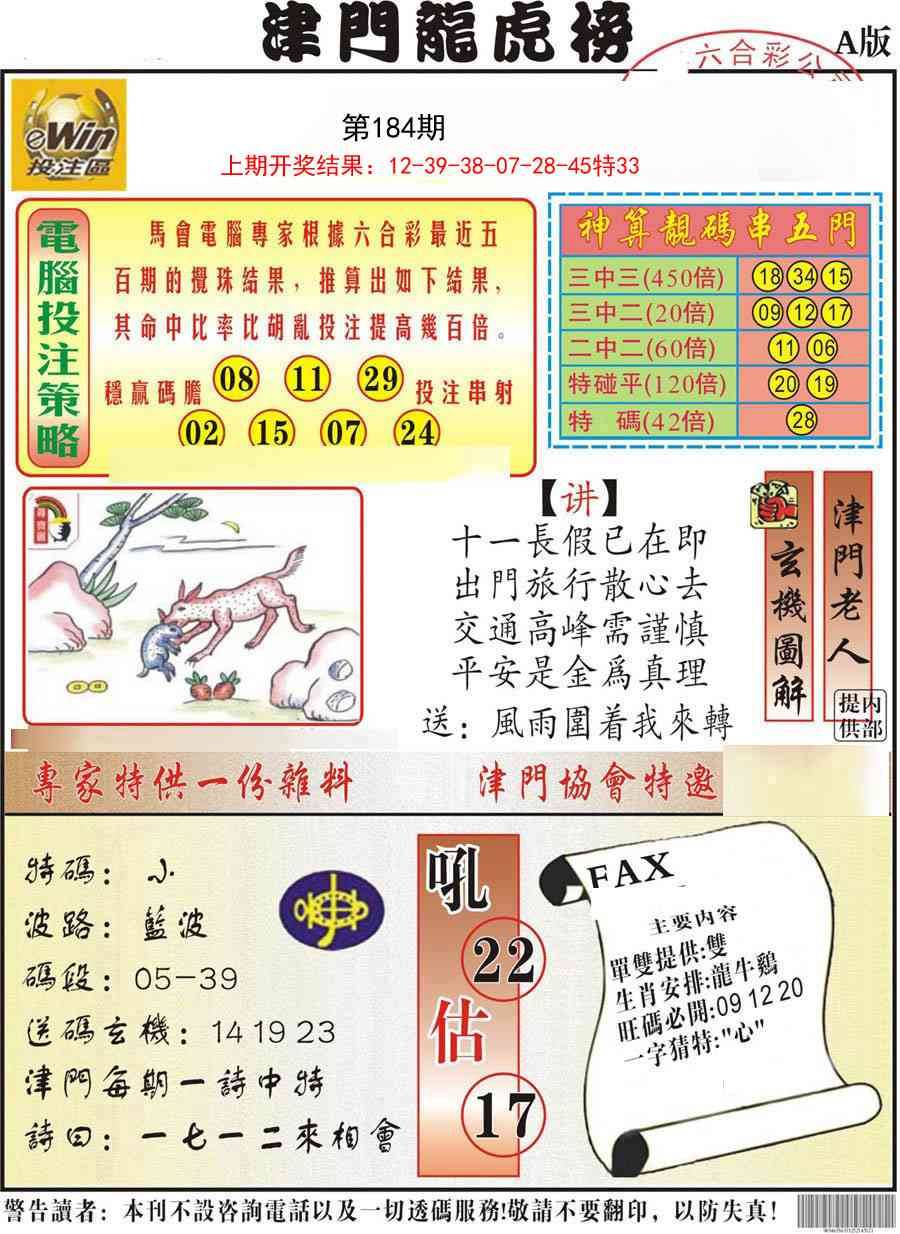 津門龍虎榜
A版
六合彩公
eWin
投注區
第184期
上期开奖结果：12-39-38-07-28-45特33
電腦投注策略
馬會電腦專家根據六合彩最近五
百期的攪珠結果，推算出如下結果，
其命中比率比胡亂投注提高幾百倍。
穩贏碼膽 08 11 29 投注串射
02 15 07 24
神算靚碼串五門
三中三(450倍) 18 34 15
三中二(20倍) 09 12 17
二中二(60倍) 11 06
特碰平(120倍) 20 19
特 碼(42倍) 28
【讲】
十一長假已在即
出門旅行散心去
交通高峰需謹慎
平安是金爲真理
送：風雨圍着我來轉
玄機圖解
津門老人
内部提供
專家特供一份雜料
津門協會特邀
特碼：小
波路：藍波
碼段：05-39
送碼玄機：14 19 23
津門每期一詩中特
詩曰：一七一二來相會
吼
22
估
17
FAX
主要内容
單雙提供:雙
生肖安排:龍牛鷄
旺碼必開:09 12 20
一字猜特:"心"
警告讀者：本刊不設咨詢電話以及一切透碼服務!敬請不要翻印，以防失真!